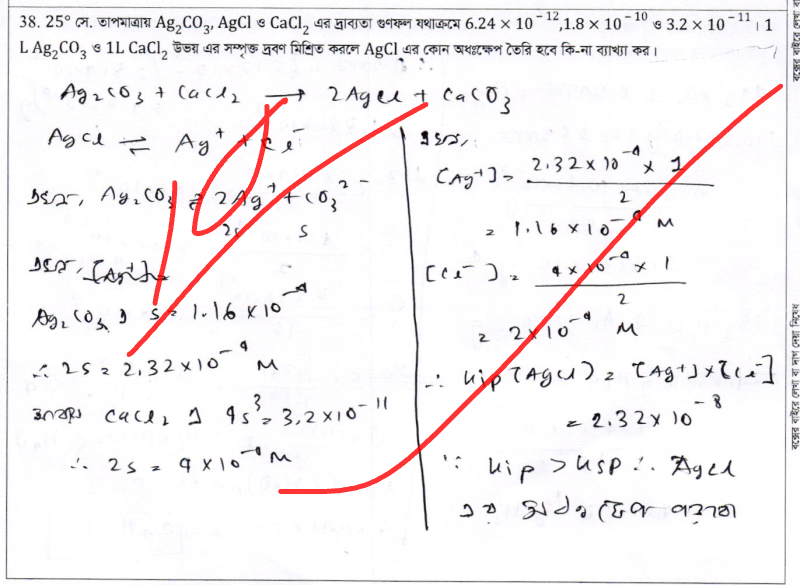 38. 25° সে. তাপমাত্রায় Ag₂CO₃, AgCl ও CaCl₂ এর দ্রাব্যতা গুণফল যথাক্রমে 6.24 × 10⁻¹², 1.8 × 10⁻¹⁰ ও 3.2 × 10⁻¹¹। 1
L Ag₂CO₃ ও 1L CaCl₂ উভয় এর সম্পৃক্ত দ্রবণ মিশ্রিত করলে AgCl এর কোন অধঃক্ষেপ তৈরি হবে কি-না ব্যাখ্যা কর।
Ag₂CO₃ + CaCl₂ ⟶ 2AgCl + CaCO₃
AgCl ⇌ Ag⁺ + Cl⁻
এখন, Ag₂CO₃ ⇌ 2Ag⁺ + CO₃²⁻
2s s
এখন, [Ag⁺] =
Ag₂CO₃ এ s = 1.16 × 10⁻⁴
∴ 2s = 2.32 × 10⁻⁴ M
আবার CaCl₂ এ 4s³ = 3.2 × 10⁻¹¹
∴ 2s = 4 × 10⁻⁴ M
এখন,
[Ag⁺] = 2.32 × 10⁻⁴ × 1 / 2
= 1.16 × 10⁻⁴ M
[Cl⁻] = 4 × 10⁻⁴ × 1 / 2
= 2 × 10⁻⁴ M
∴ Kip [AgCl] = [Ag⁺] × [Cl⁻]
= 2.32 × 10⁻⁸
∵ Kip > Ksp ∴ AgCl
এর অধঃক্ষেপ পড়বে
বক্সের বাইরে লেখা বা দাগ দেয়া নিষেধ